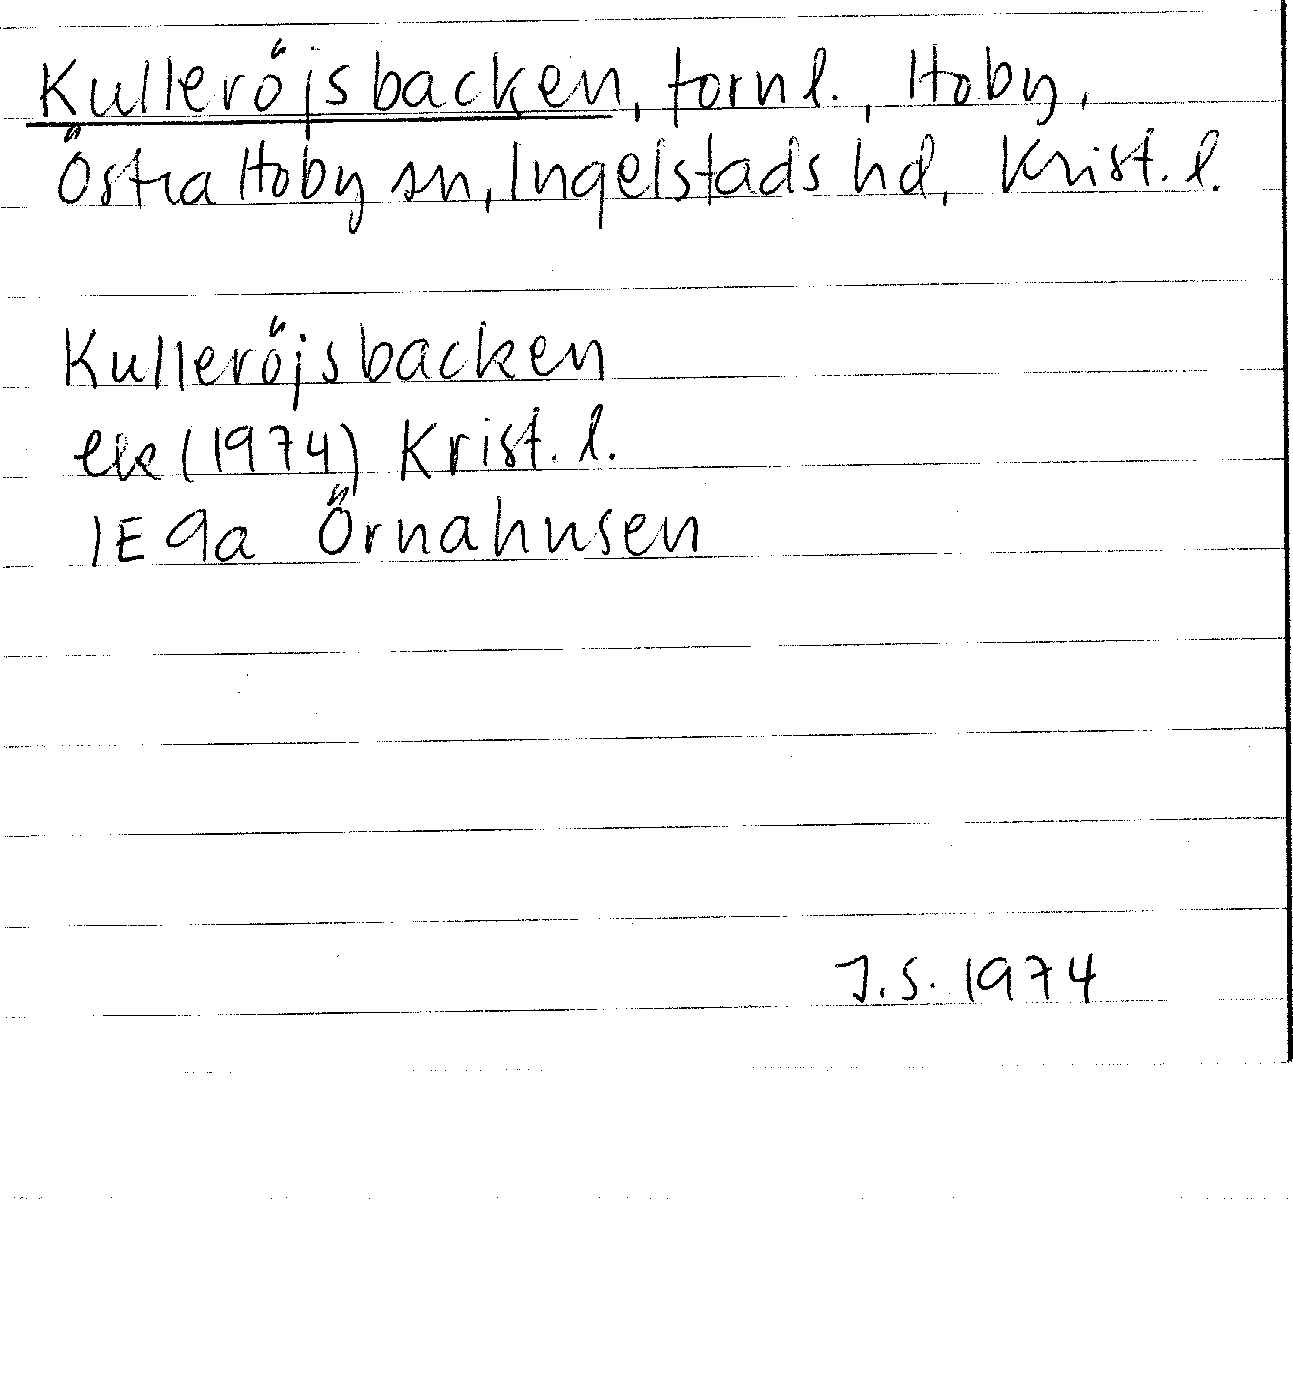 Kulleröjsbacken, fornl., Hoby,
Östra Hoby sn, Ingelstads hd, Krist. l.
Kulleröjsbacken
ek (1974) Krist. l.
1E 9a Örnahusen
J.S. 1974